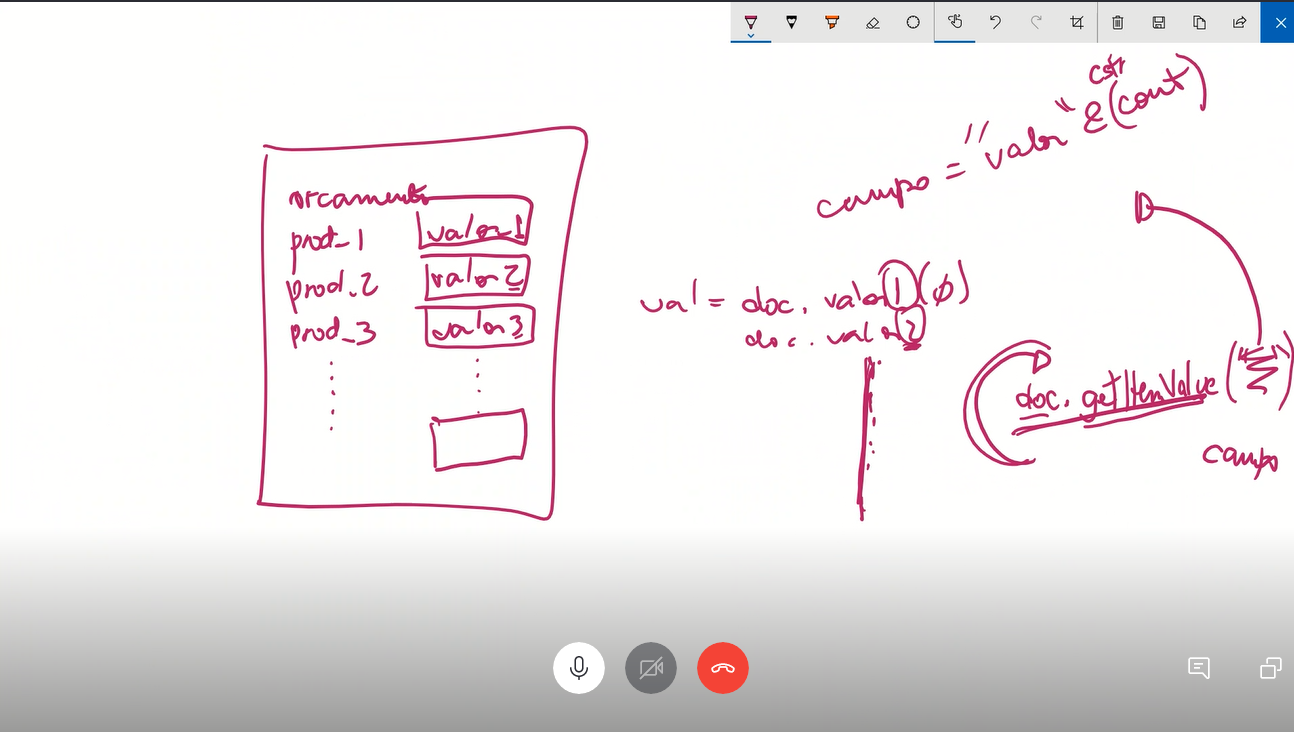 orcamento
prod_1 valor_1
prod_2 valor2
prod_3 valor3
campo = "valor" & cstr (cont)
val = doc. valor1(φ)
doc. valor2
doc. getItemValue (" ")
campo